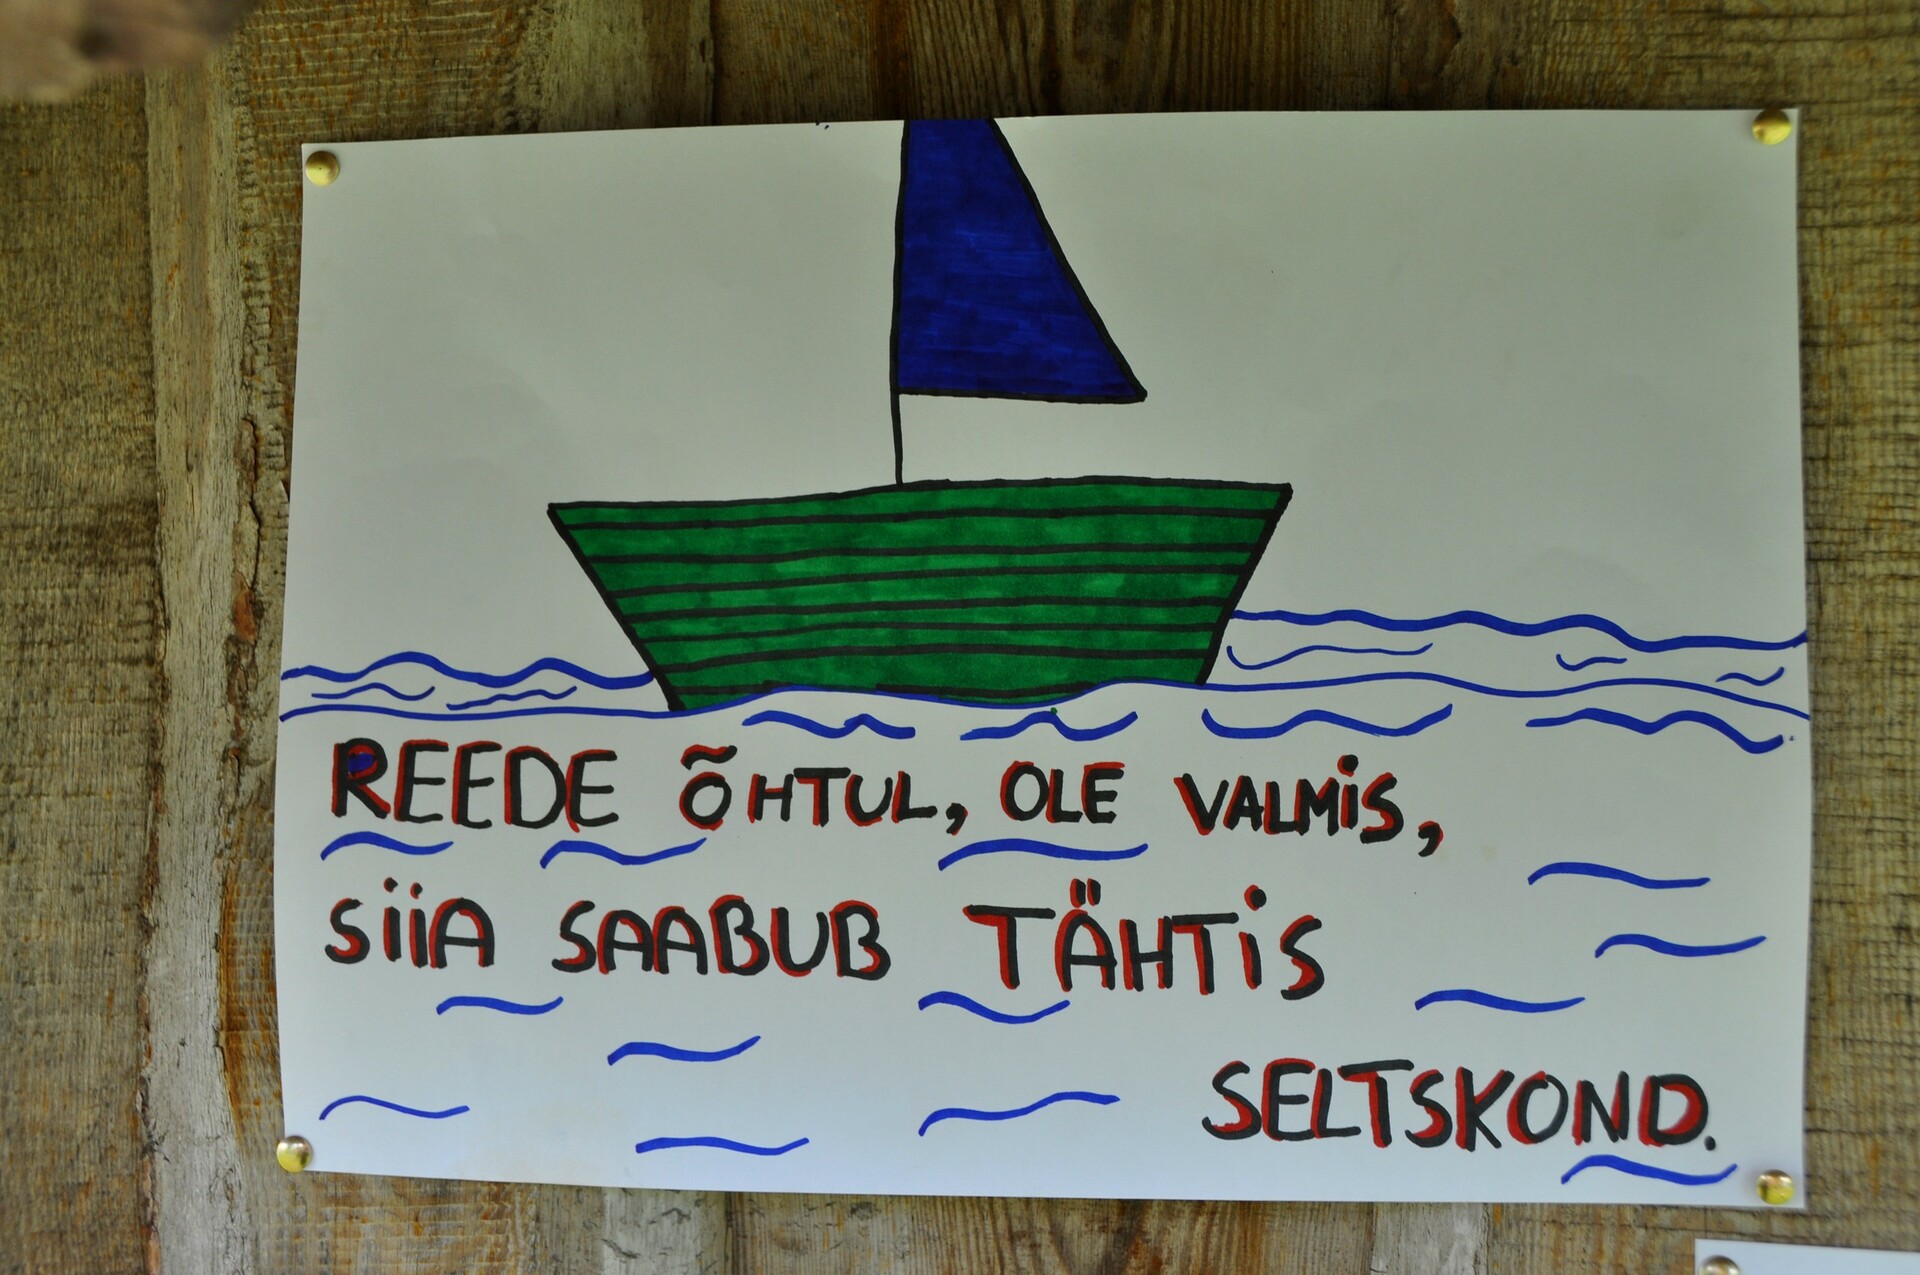 REEDE ÕHTUL, OLE VALMIS,
SIIA SAABUB TÄHTIS
SELTSKOND.